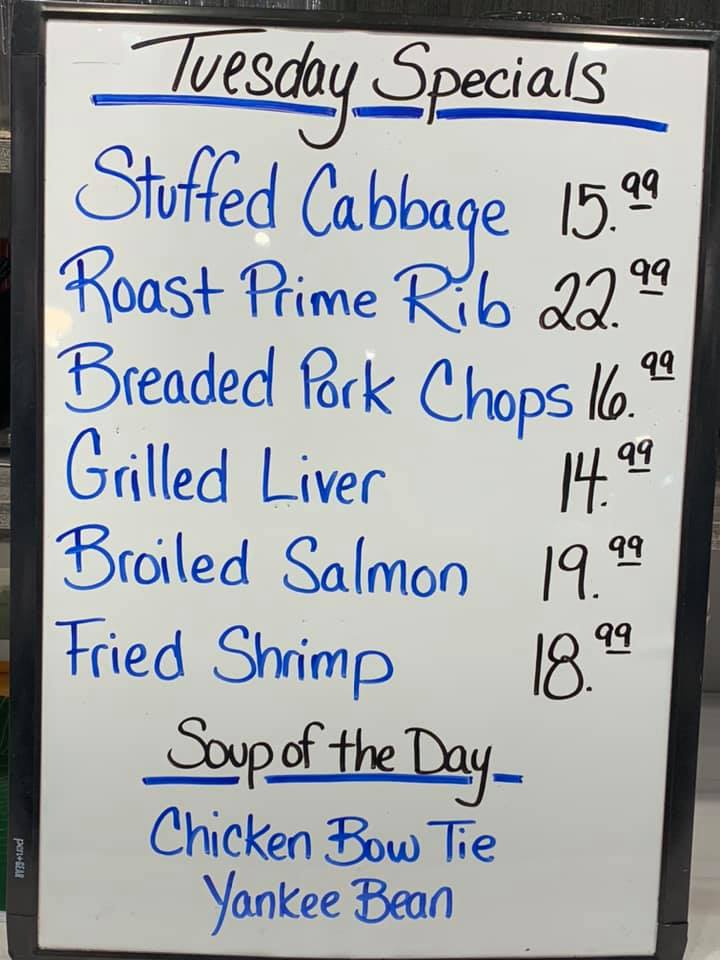 Tuesday Specials
Stuffed Cabbage 15.99
Roast Prime Rib 22.99
Breaded Pork Chops 16.99
Grilled Liver 14.99
Broiled Salmon 19.99
Fried Shrimp 18.99
Soup of the Day
Chicken Bow Tie
Yankee Bean
pen+GEAR